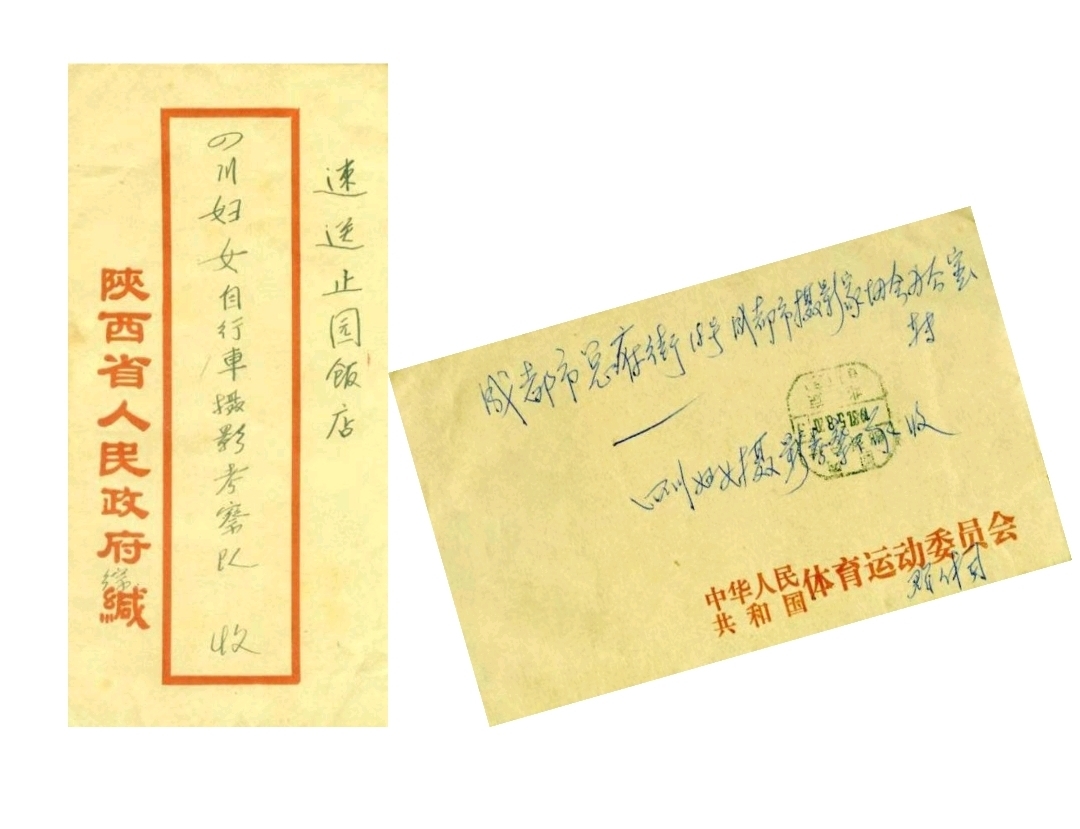 速送止园飯店
四川妇女自行車摄影考察队 收
陕西省人民政府
缄
成都市总府街18号成都市摄影家协会办公室
转
四川妇女摄影考察队收
中华人民共和国体育运动委员会